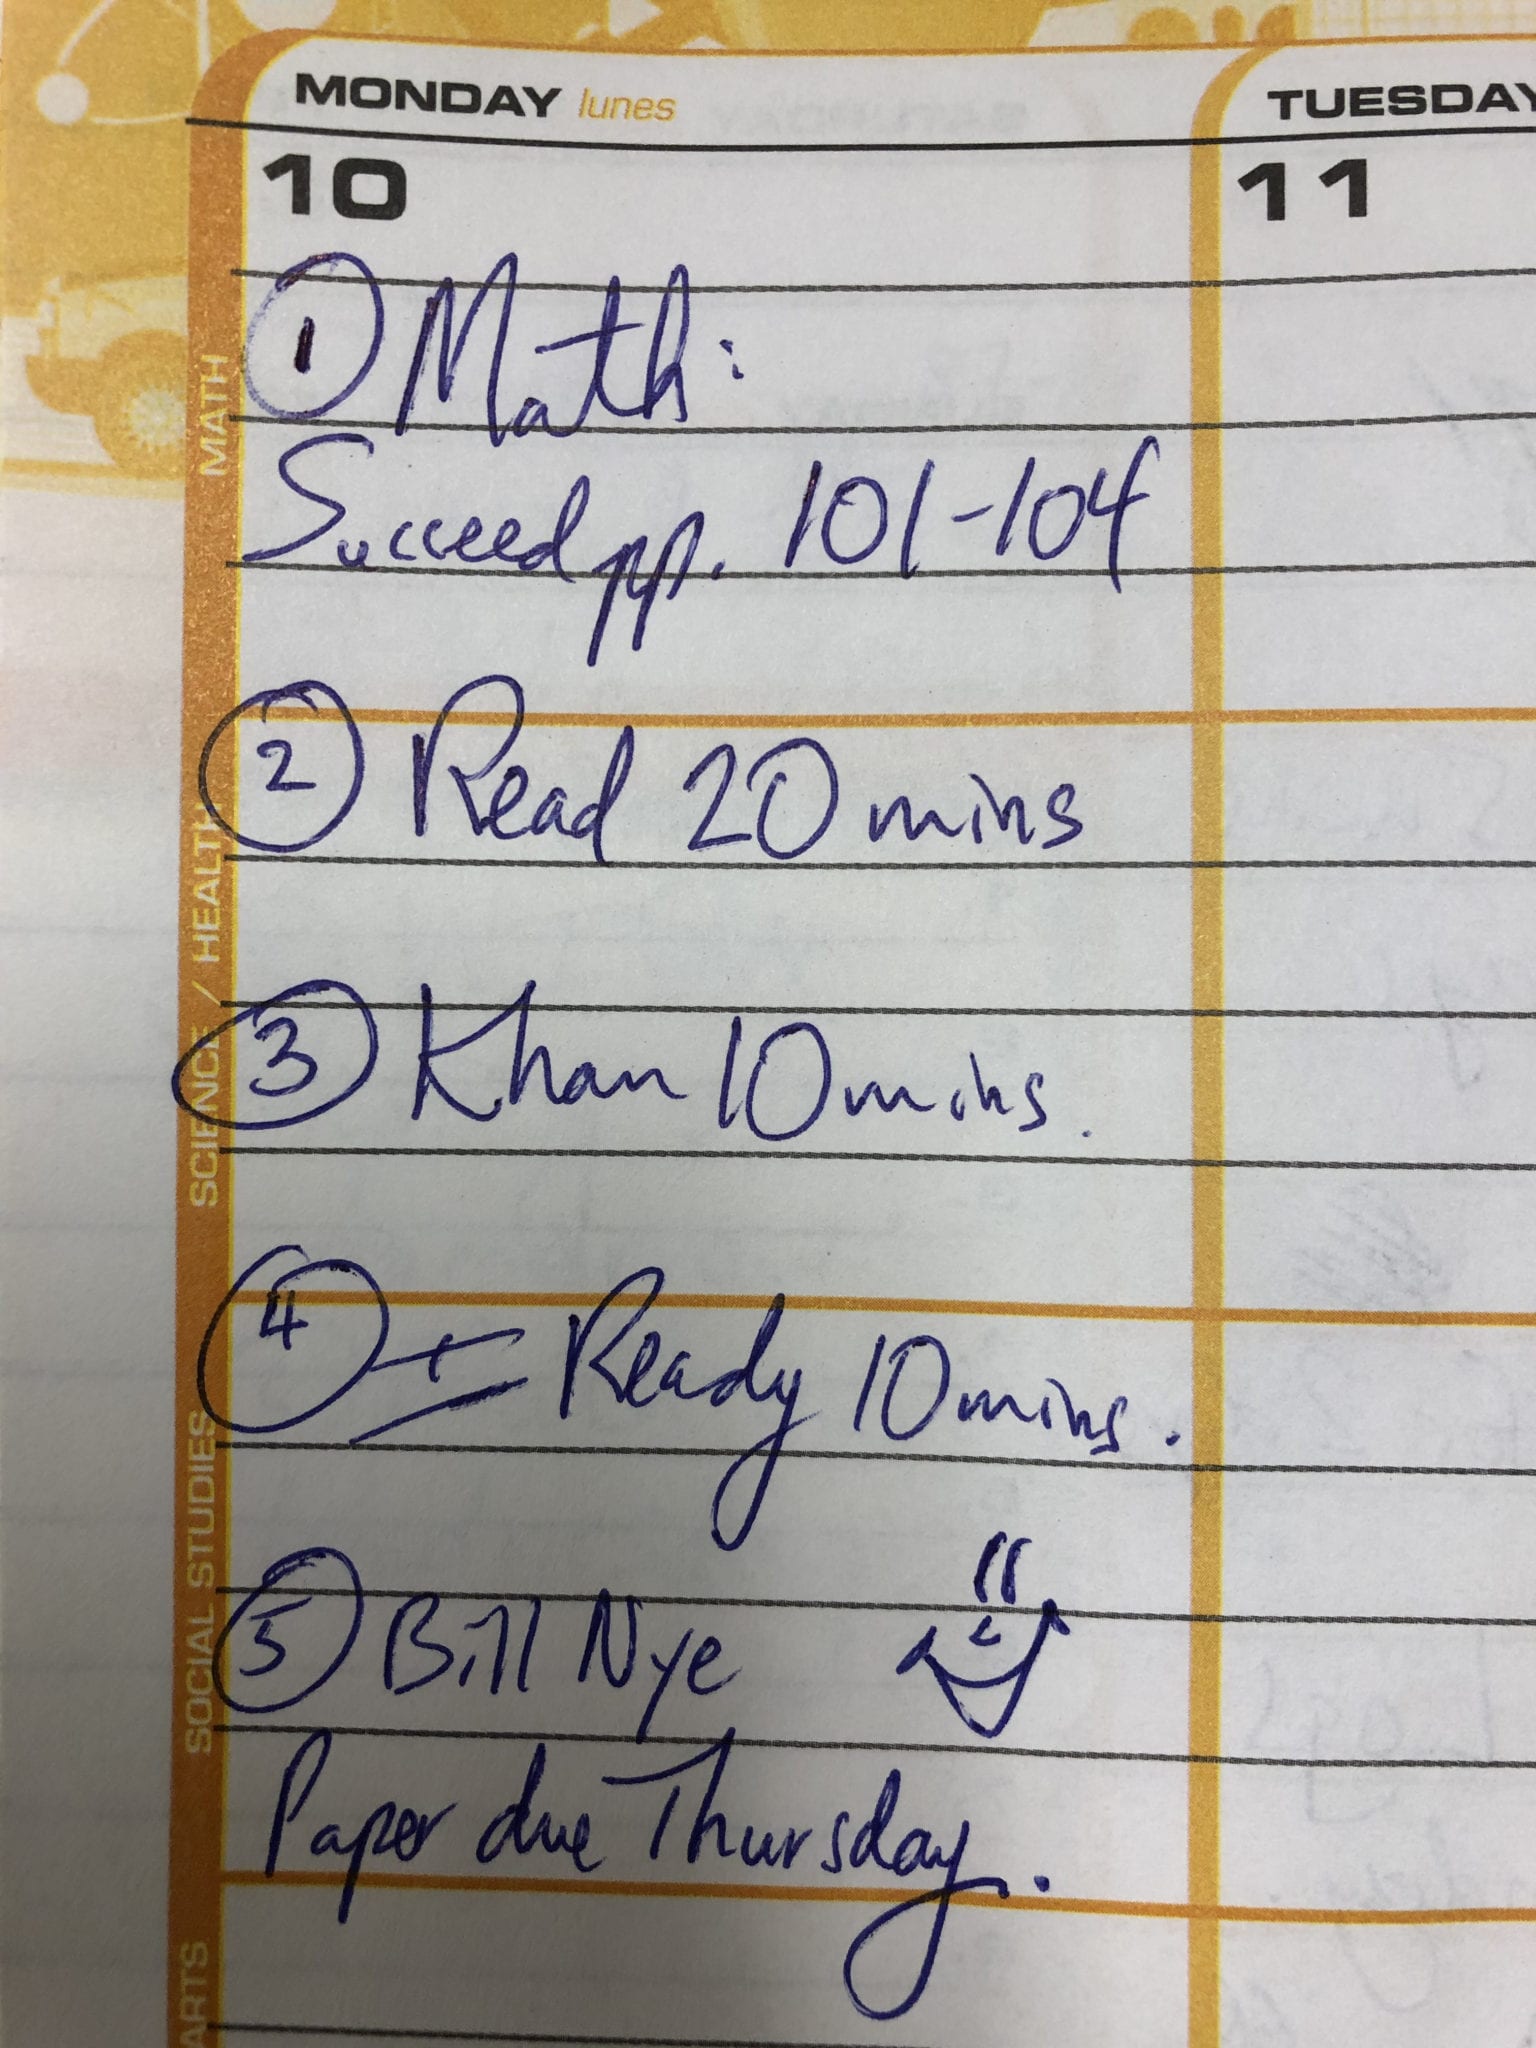 MONDAY lunes
TUESDAY
10
11
① Math:
Succeed pp. 101-104
② Read 20 mins
③ Khan 10 mins.
④ I-Ready 10 mins.
⑤ Bill Nye
Paper due Thursday.
MATH
SCIENCE / HEALTH
SOCIAL STUDIES
ARTS